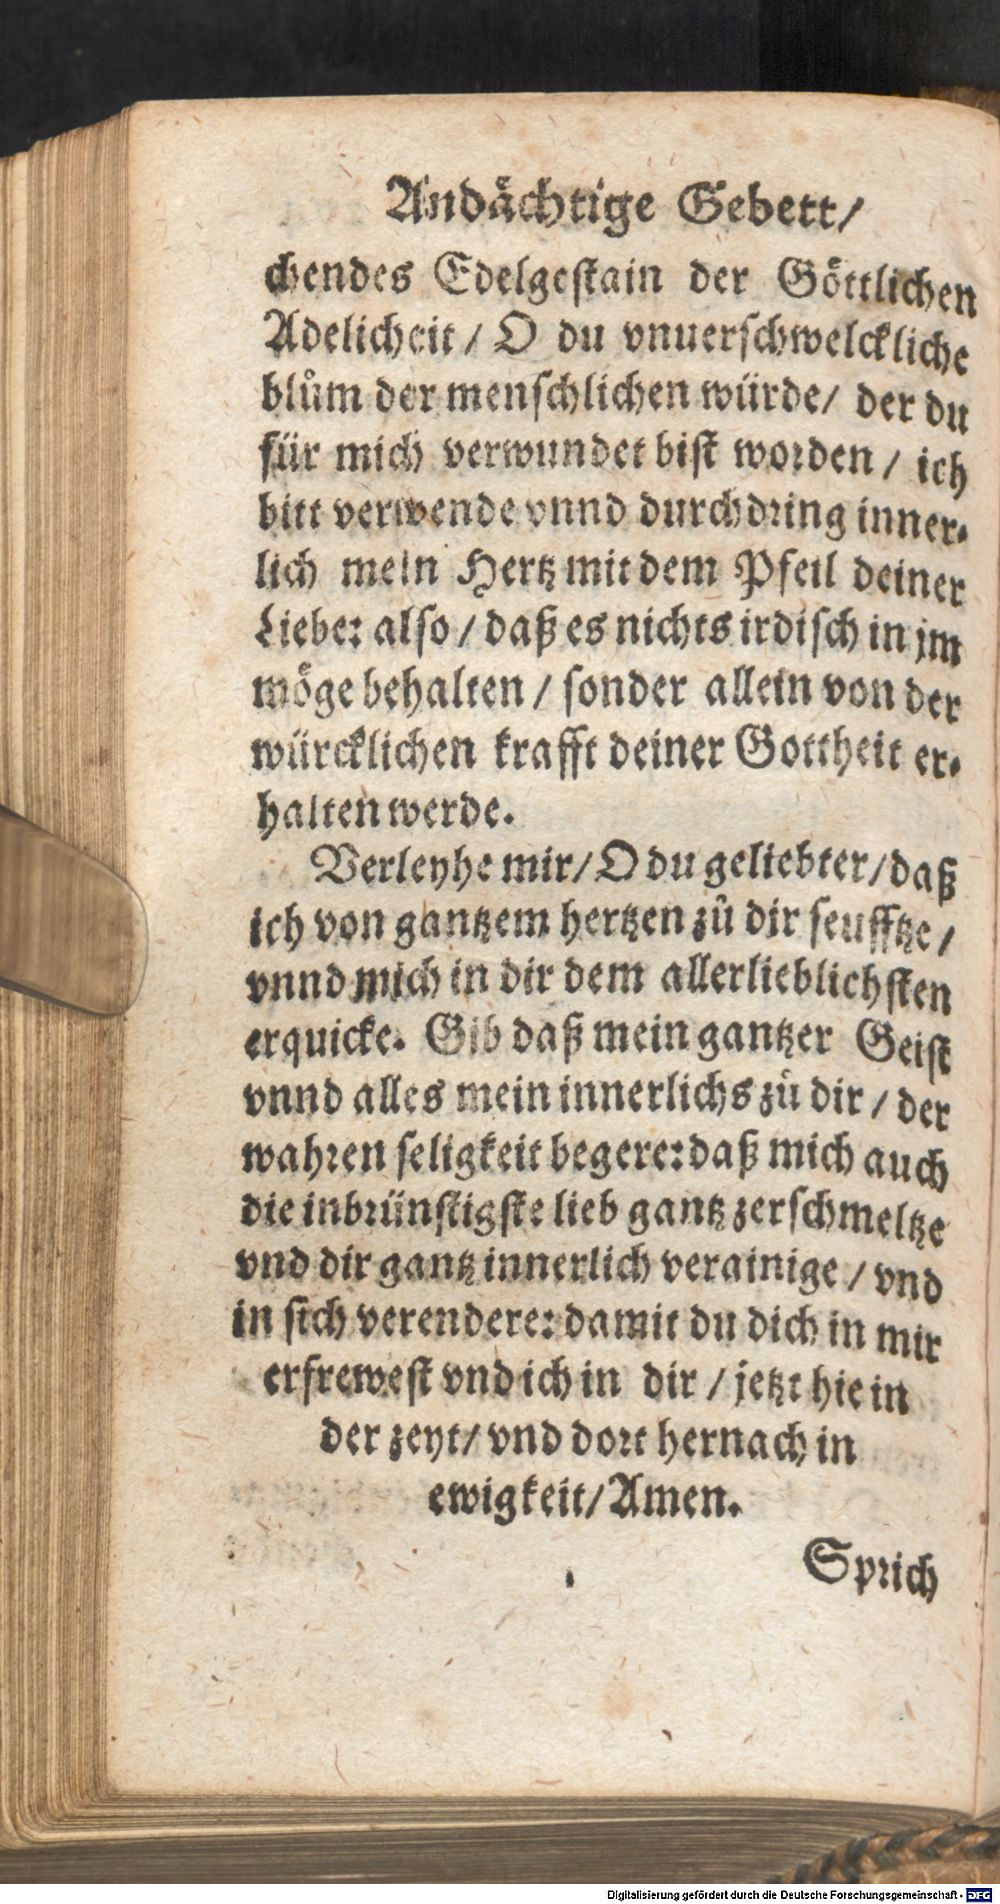 Andächtige Gebett/
chendes Edelgestain der Göttlichen
Adelicheit/ O du vnuerschwelckliche
blům der menschlichen würde/ der du
für mich verwundet bist worden/ ich
bitt verwende vnnd durchdring inner-
lich mein Hertz mit dem Pfeil deiner
Liebe: also/ daß es nichts irdisch in jm
möge behalten/ sonder allein von der
würcklichen krafft deiner Gottheit er-
halten werde.
Verleyhe mir/ O du geliebter/ daß
ich von gantzem hertzen zů dir seufftze/
vnnd mich in dir dem allerlieblichsten
erquicke. Gib daß mein gantzer Geist
vnnd alles mein innerlichs zů dir/ der
wahren seligkeit begere: daß mich auch
die inbrünstigste lieb gantz zerschmeltze
vnd dir gantz innerlich verainige/ vnd
in sich verendere: damit du dich in mir
erfrewest vnd ich in dir/ jetzt hie in
der zeyt/ vnd dort hernach in
ewigkeit/ Amen.
Sprich
Digitalisierung gefördert durch die Deutsche Forschungsgemeinschaft - DFG